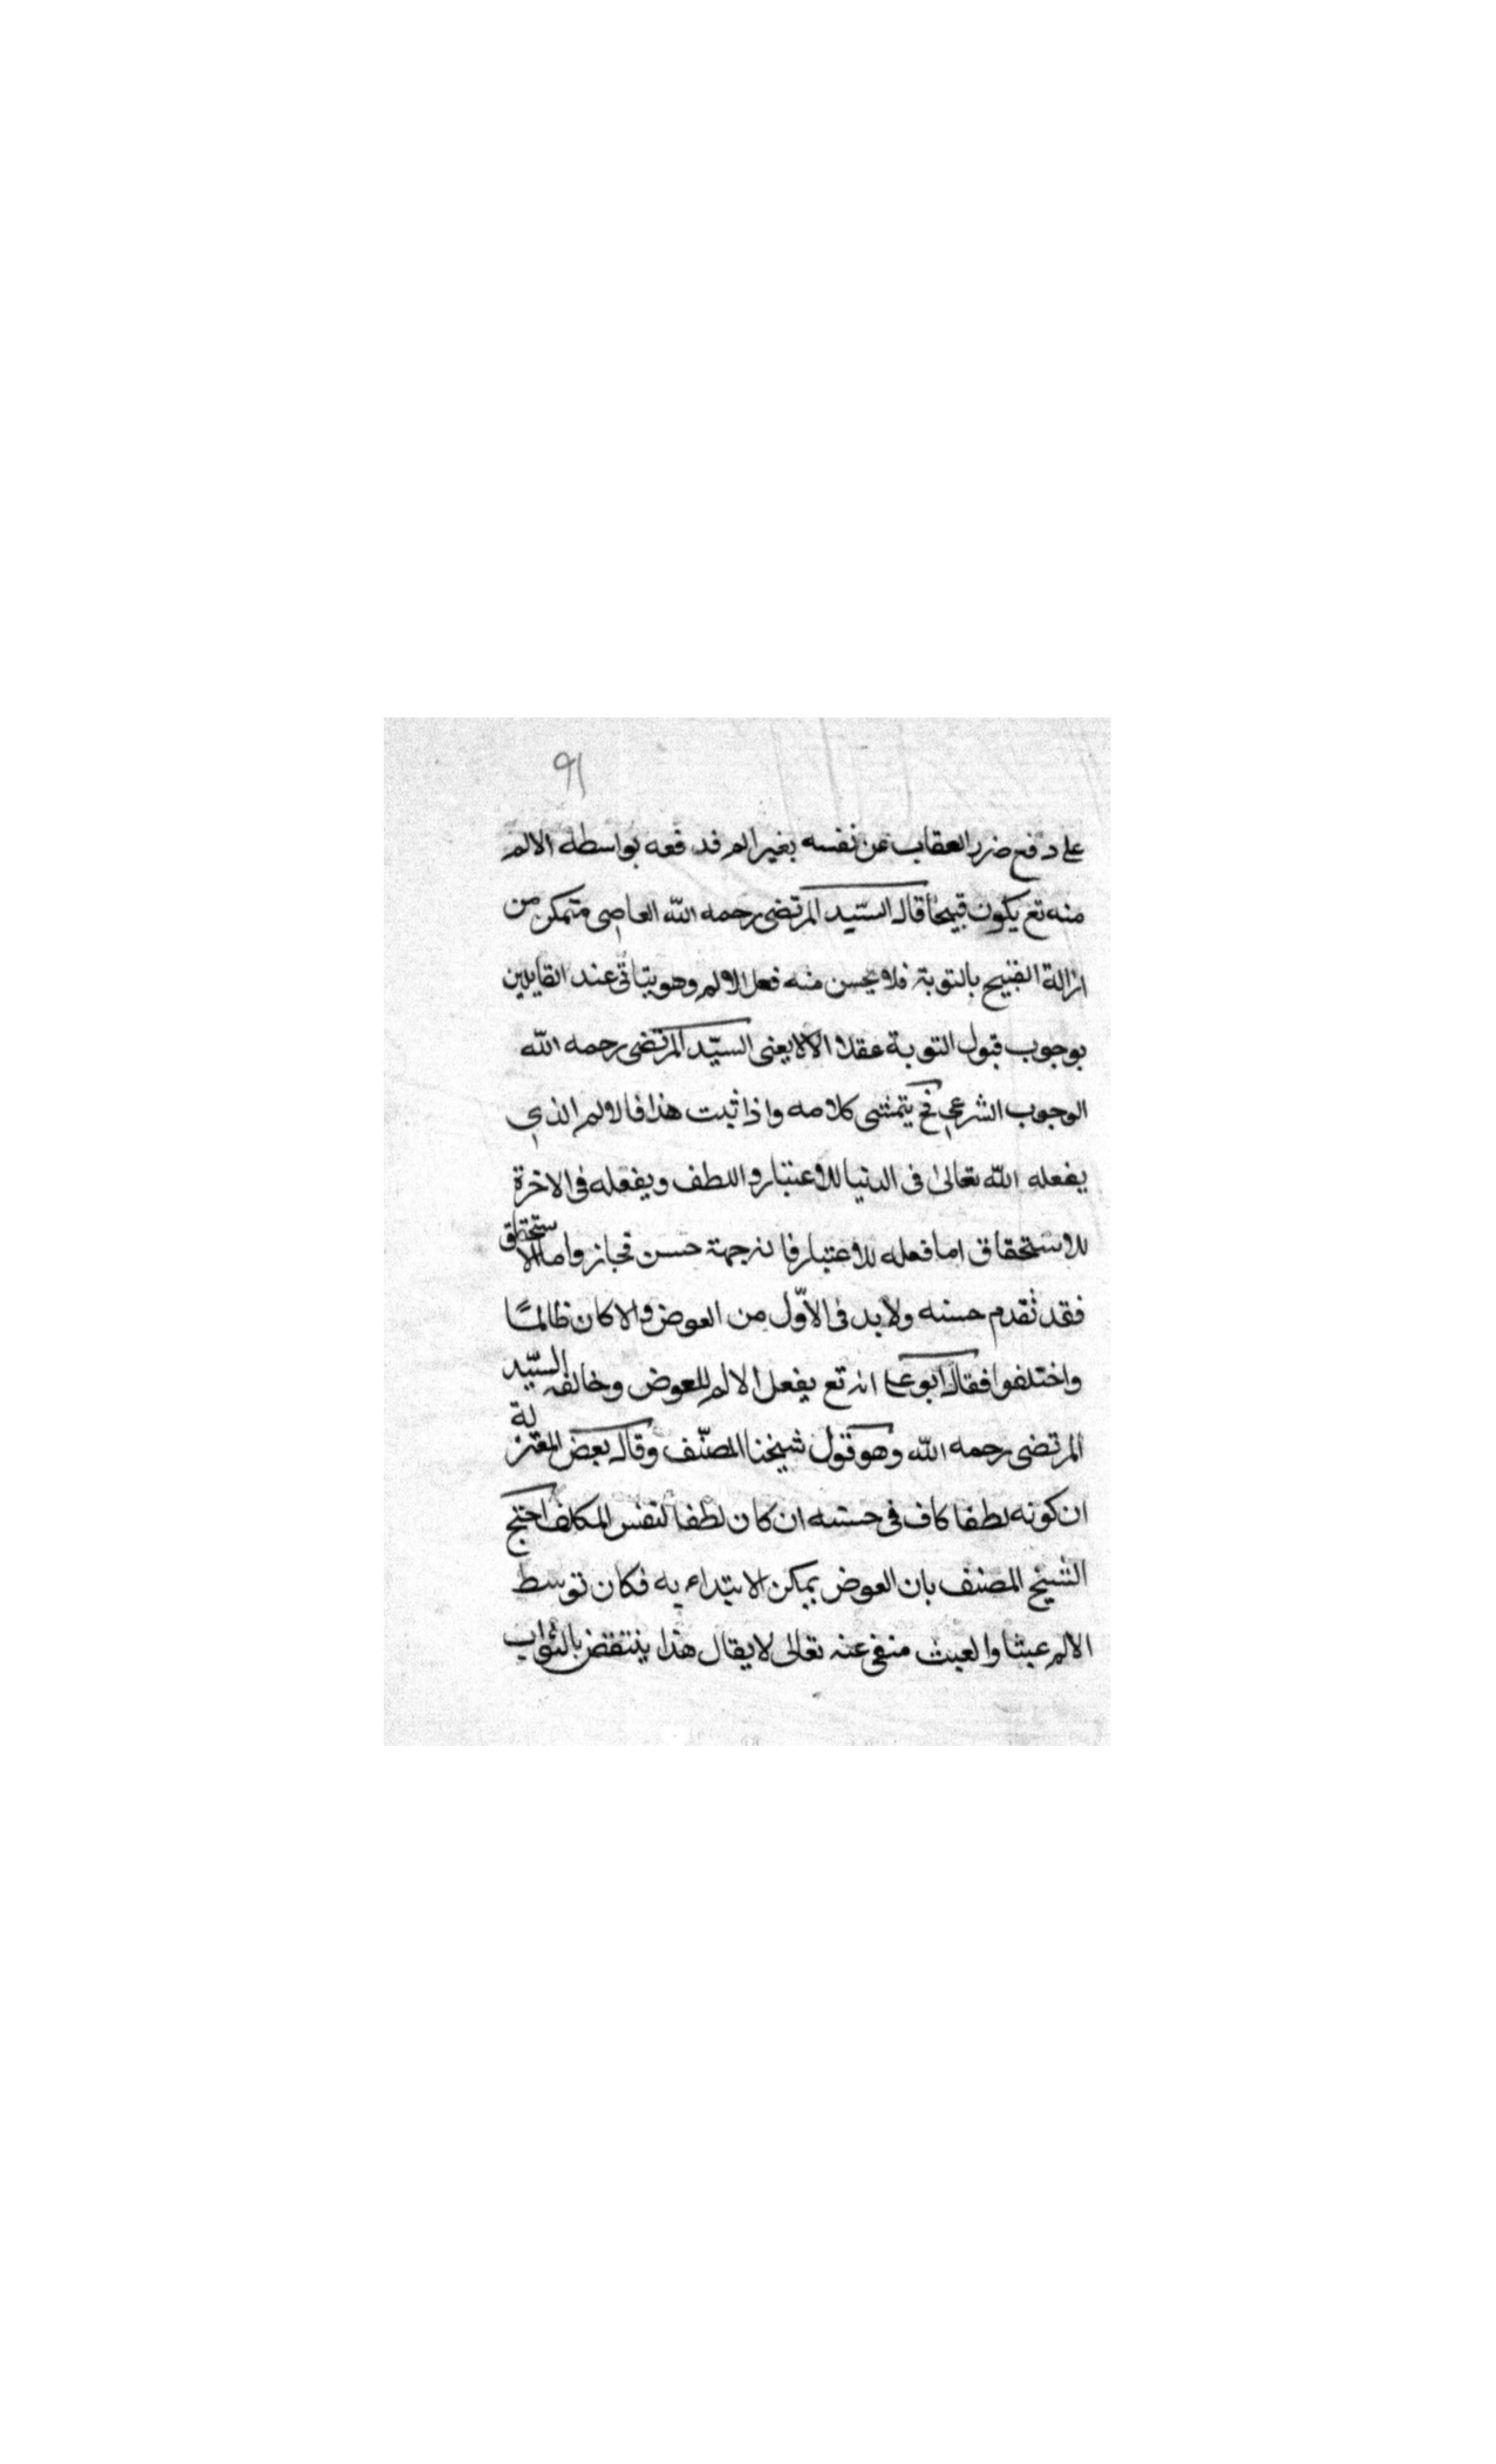 ٩١
على دفع ضرر العقاب عن نفسه بغير الم فدفعه بواسطة الالم
منه تع يكون قبيحا قال السّيد المرتضى رحمه اللّه العاصي متمكن من
ازالة القبيح بالتوبة فلا يحسن منه فعل الالم وهو يتاتى عند القايلين
بوجوب قبول التوبة عقلا الا يعنى السيّد المرتضى رحمه اللّه
الوجوب الشرعي فح يتمشى كلامه واذا ثبت هذا فالالم الذي
يفعله اللّه تعالى فى الدنيا للاعتبار واللطف ويفعله فى الاخرة
للاستحقاق اما فعله للاعتبار فانه جهة حسن فجاز واما الاستحقاق
فقد تقدم حسنه ولابد فى الاوّل من العوض والا كان ظالمًا
واختلفوا فقال ابو على انه تع يفعل الالم للعوض وخالفه السيّد
المرتضى رحمه اللّه وهو قول شيخنا المصنّف وقال بعض المعتزلة
ان كونه لطفا كاف فى حسنه ان كان لطفا لنفس المكلف احتج
الشيخ المصنف بان العوض يمكن الابتداء به فكان توسط
الالم عبثا والعبث منفى عنه تعالى لا يقال هذا ينتقض بالثواب